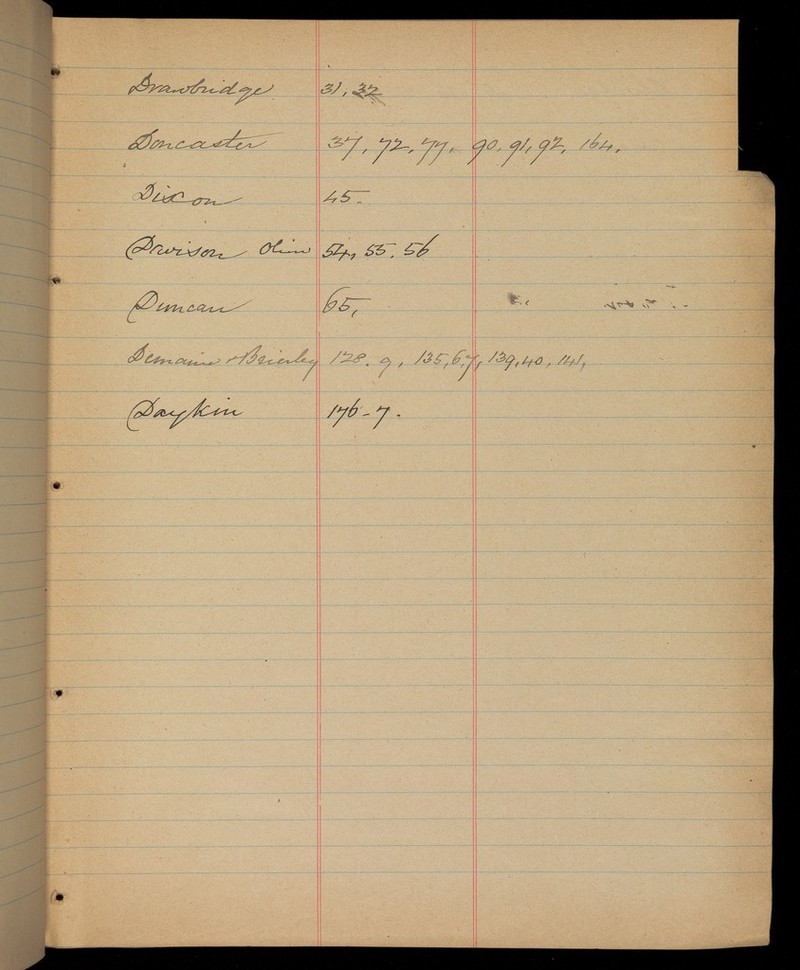 Drawbridge 31, 32
Doncaster 37, 72, 77, 90, 91, 92, 164,
Dixon 45.
Davison 54, 55, 56
Duncan 65,
Demaine & Brierley 128. 9, 135, 6, 7, 139, 40, 141,
Daykin 176-7.